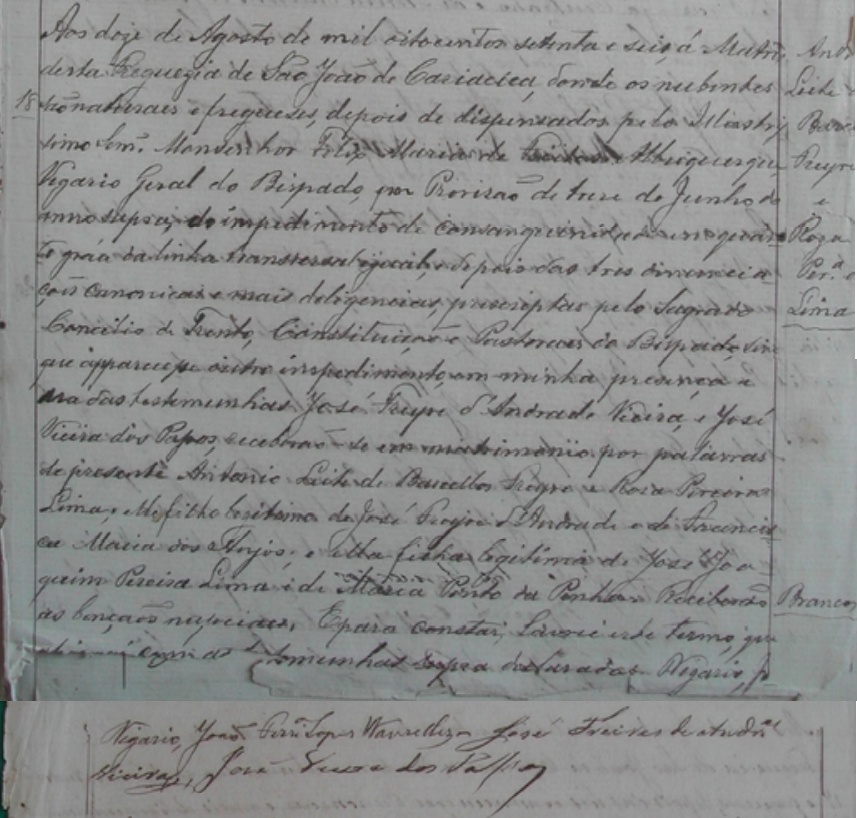 Aos doze de Agosto de mil oitocentos setenta e seis, á Matriz
desta Freguezia de São João de Cariacica, donde os nubentes
são naturaes e freguezes, depois de dispensados pelo Illustris
simo Snr. Monsenhor Felix Maria de Freitas e Albuquerque,
Vigario Geral do Bispado, por Provisão de treze de Junho do
anno supra, do impedimento de consanguinidade em quar
to gráo da linha transversal igual, e depois das tres denuncia
ções canonicas e mais deligencias, prescriptas pelo Sagrado
Concilio de Trento, Constituição e Pastoraes do Bispado sem
que apparecesse outro impedimento, em minha presença e
das testemunhas José Freyre d'Andrade Vieira, e José
Vieira dos Passos, receberão-se em matrimonio por palavras
de presente Antonio Leite de Barcellos Freyre e Roza Pereira
Lima, elle filho legitimo de José Freyre d'Andrade e de Francis
ca Maria dos Anjos, e ella filha legitima de José Joa
quim Pereira Lima e de Maria Pinto da Penha. Receberão
as bençaõs nupciaes. E para constar, Lavrei este termo, que
com as testemunhas supra declaradas. Vigario, J
18
Andr
Leite
Barc
Freyre
e
Roza
Per.ª
Lima
Brancos
Vigario, João Lopes José Freires de Andr.e
Vieira, José Vieira dos Passos